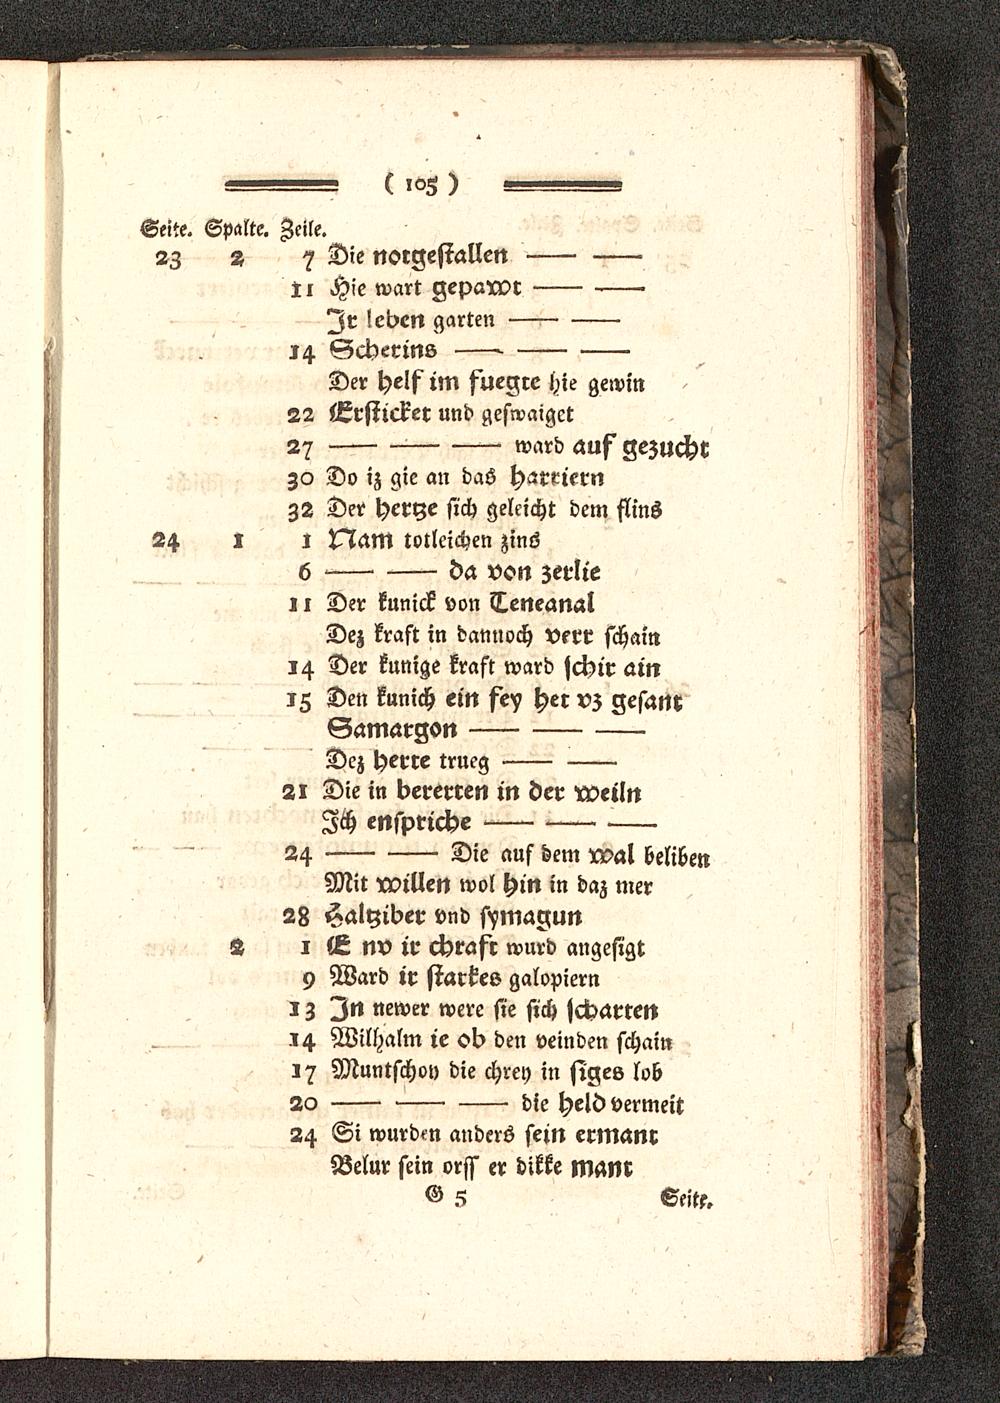 ( 105 )
Seite. Spalte. Zeile.
23 2 7 Die notgestallen — —
11 Hie wart gepawt — —
Ir leben garten — —
14 Scherins — — —
Der helf im fuegte hie gewin
22 Ersticket und geswaiget
27 — — — ward auf gezucht
30 Do iz gie an das harriern
32 Der hertze sich geleicht dem flins
24 1 1 Nam totleichen zins
6 — — da von zerlie
11 Der kunick von Teneanal
Dez kraft in dannoch verr schain
14 Der kunige kraft ward schir ain
15 Den kunich ein fey her vz gesant
Samargon — — —
Dez herre trueg — —
21 Die in bererten in der weiln
Ich enspriche — — —
24 — — Die auf dem wal beliben
Mit willen wol hin in daz mer
28 Haltziber vnd symagun
2 1 E nv ir chraft wurd angesigt
9 Ward ir starkes galopiern
13 In newer were sie sich scharten
14 Wilhalm ie ob den veinden schain
17 Muntschoy die chrey in siges lob
20 — — — die held vermeit
24 Si wurden anders sein ermant
Velur sein orss er dikke mant
G 5 Seite.